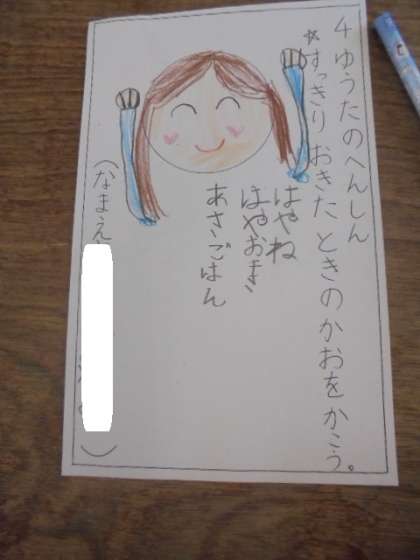 4 ゆうたのへんしん
☆すっきり おきた ときのかおをかこう。
はやね
はやおき
あさごはん
(なまえ
)